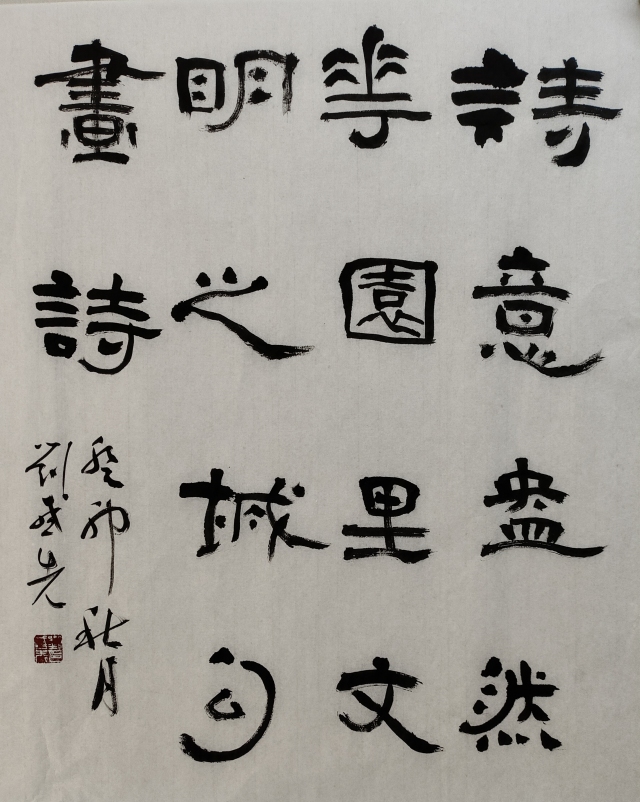 詩意盎然
華園里文
明之城勾
畫詩
癸卯秋月
劉先